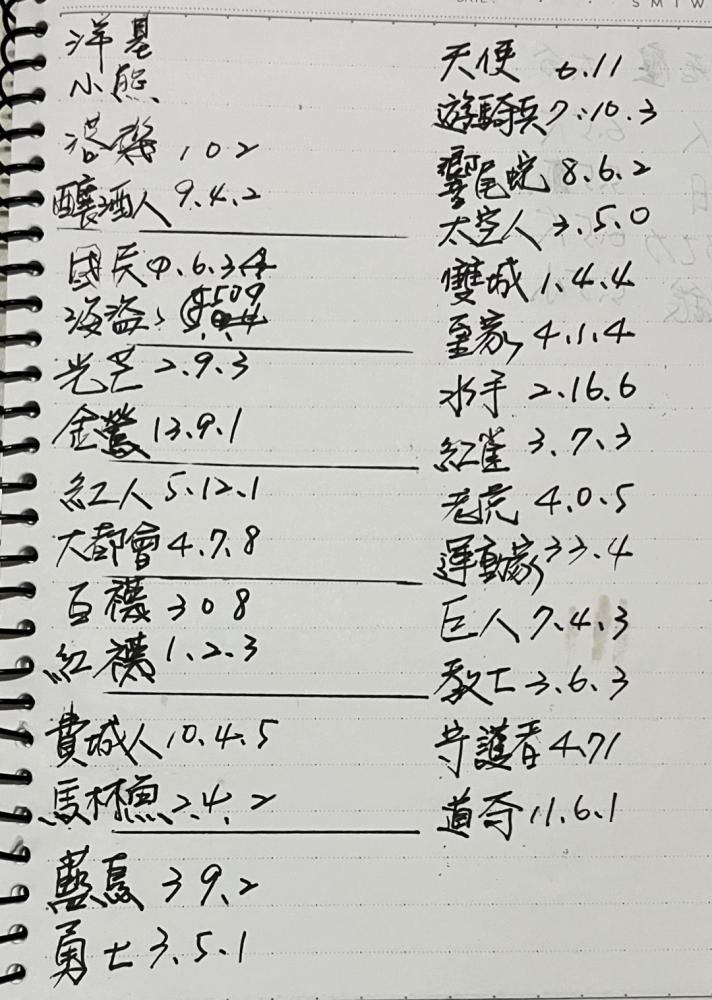 洋基
小熊
洛磯 1 0 2
釀酒人 9.4.2
國民 9.6.3
海盜
光芒 2.9.3
金鶯 13.9.1
紅人 5.12.1
大都會 4.7.8
白襪 3 0 8
紅襪 1.2.3
費城人 10.4.5
馬林魚 2.4.2
藍鳥 3 9.2
勇士 3.5.1
天使 6.11
遊騎兵 7.10.3
響尾蛇 8.6.2
太空人 3.5.0
雙城 1.4.4
皇家 4.1.4
水手 2.16.6
紅雀 3.7.3
老虎 4.0.5
運動家 3 3.4
巨人 7.4.3
教士 3.6.3
守護者 4.71
道奇 11.6.1
S M T W